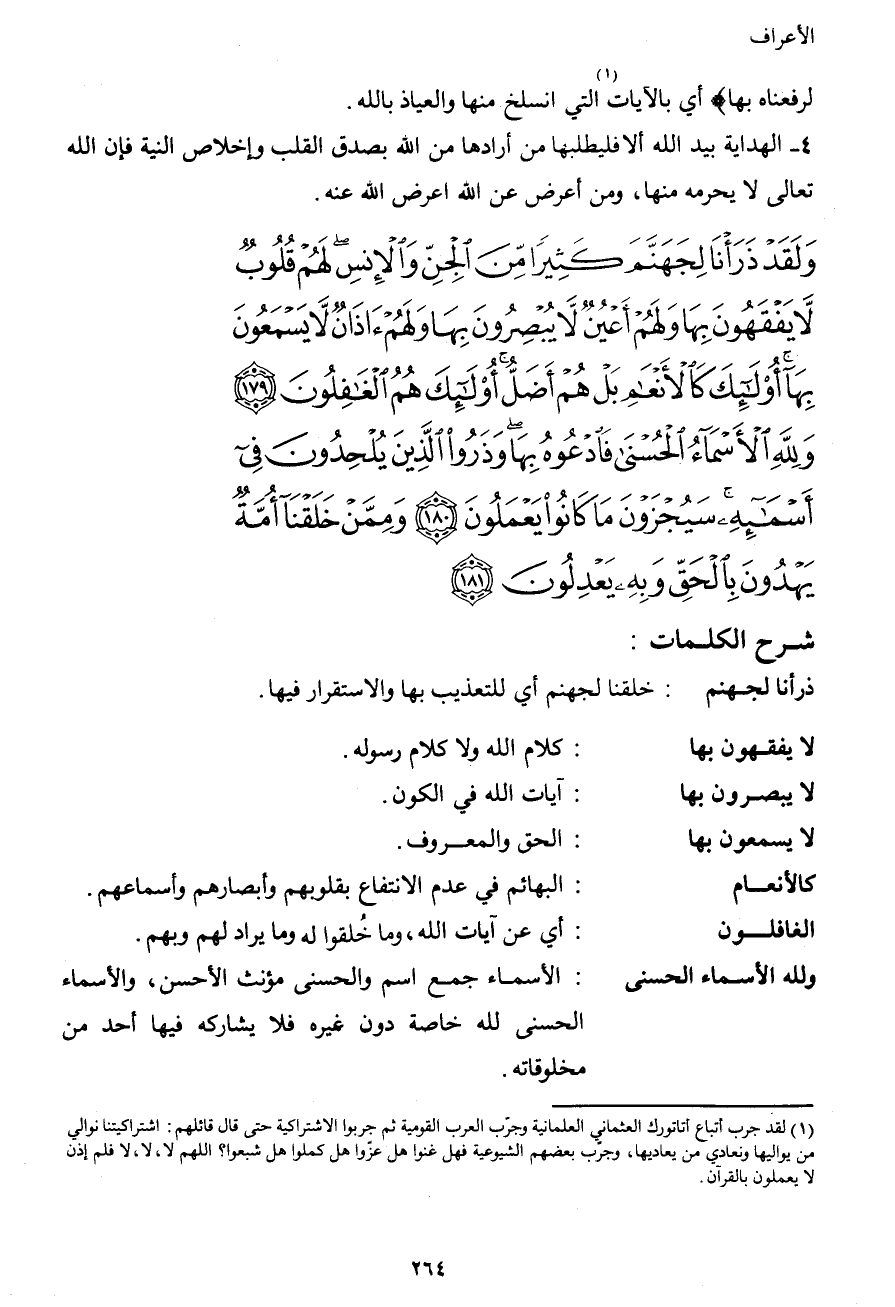 الأعراف
لرفعناه بها﴾ أي بالآيات(١) التي انسلخ منها والعياذ بالله.
٤ـ الهداية بيد الله ألا فليطلبها من أرادها من الله بصدق القلب وإخلاص النية فإن الله
تعالى لا يحرمه منها، ومن أعرض عن الله اعرض الله عنه.
وَلَقَدْ ذَرَأْنَا لِجَهَنَّمَ كَثِيرًا مِّنَ ٱلْجِنِّ وَٱلْإِنسِ ۖ لَهُمْ قُلُوبٌ
لَّا يَفْقَهُونَ بِهَا وَلَهُمْ أَعْيُنٌ لَّا يُبْصِرُونَ بِهَا وَلَهُمْ ءَاذَانٌ لَّا يَسْمَعُونَ
بِهَآ ۚ أُوْلَـٰٓئِكَ كَٱلْأَنْعَـٰمِ بَلْ هُمْ أَضَلُّ ۚ أُوْلَـٰٓئِكَ هُمُ ٱلْغَـٰفِلُونَ ﴿١٧٩﴾
وَلِلَّهِ ٱلْأَسْمَآءُ ٱلْحُسْنَىٰ فَٱدْعُوهُ بِهَا ۖ وَذَرُواْ ٱلَّذِينَ يُلْحِدُونَ فِىٓ
أَسْمَـٰٓئِهِۦ ۚ سَيُجْزَوْنَ مَا كَانُواْ يَعْمَلُونَ ﴿١٨٠﴾ وَمِمَّنْ خَلَقْنَآ أُمَّةٌ
يَهْدُونَ بِٱلْحَقِّ وَبِهِۦ يَعْدِلُونَ ﴿١٨١﴾
شرح الكلمات :
ذرأنا لجهنم : خلقنا لجهنم أي للتعذيب بها والاستقرار فيها.
لا يفقهون بها : كلام الله ولا كلام رسوله.
لا يبصرون بها : آيات الله في الكون.
لا يسمعون بها : الحق والمعروف.
كالأنعام : البهائم في عدم الانتفاع بقلوبهم وأبصارهم وأسماعهم.
الغافلون : أي عن آيات الله، وما خُلقوا له وما يراد لهم وبهم.
ولله الأسماء الحسنى : الأسماء جمع اسم والحسنى مؤنث الأحسن، والأسماء
الحسنى لله خاصة دون غيره فلا يشاركه فيها أحد من
مخلوقاته.
(١) لقد جرب أتباع أتاتورك العثماني العلمانية وجرّب العرب القومية ثم جربوا الاشتراكية حتى قال قائلهم: اشتراكيتنا نوالي
من يواليها ونعادي من يعاديها، وجرّب بعضهم الشيوعية فهل غنوا هل عزّوا هل كملوا هل شبعوا؟ اللهم لا، لا، لا فلم إذن
لا يعملون بالقرآن.
٢٦٤